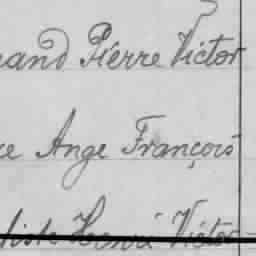 and Pierre Victor
Ange François
Henri Victor